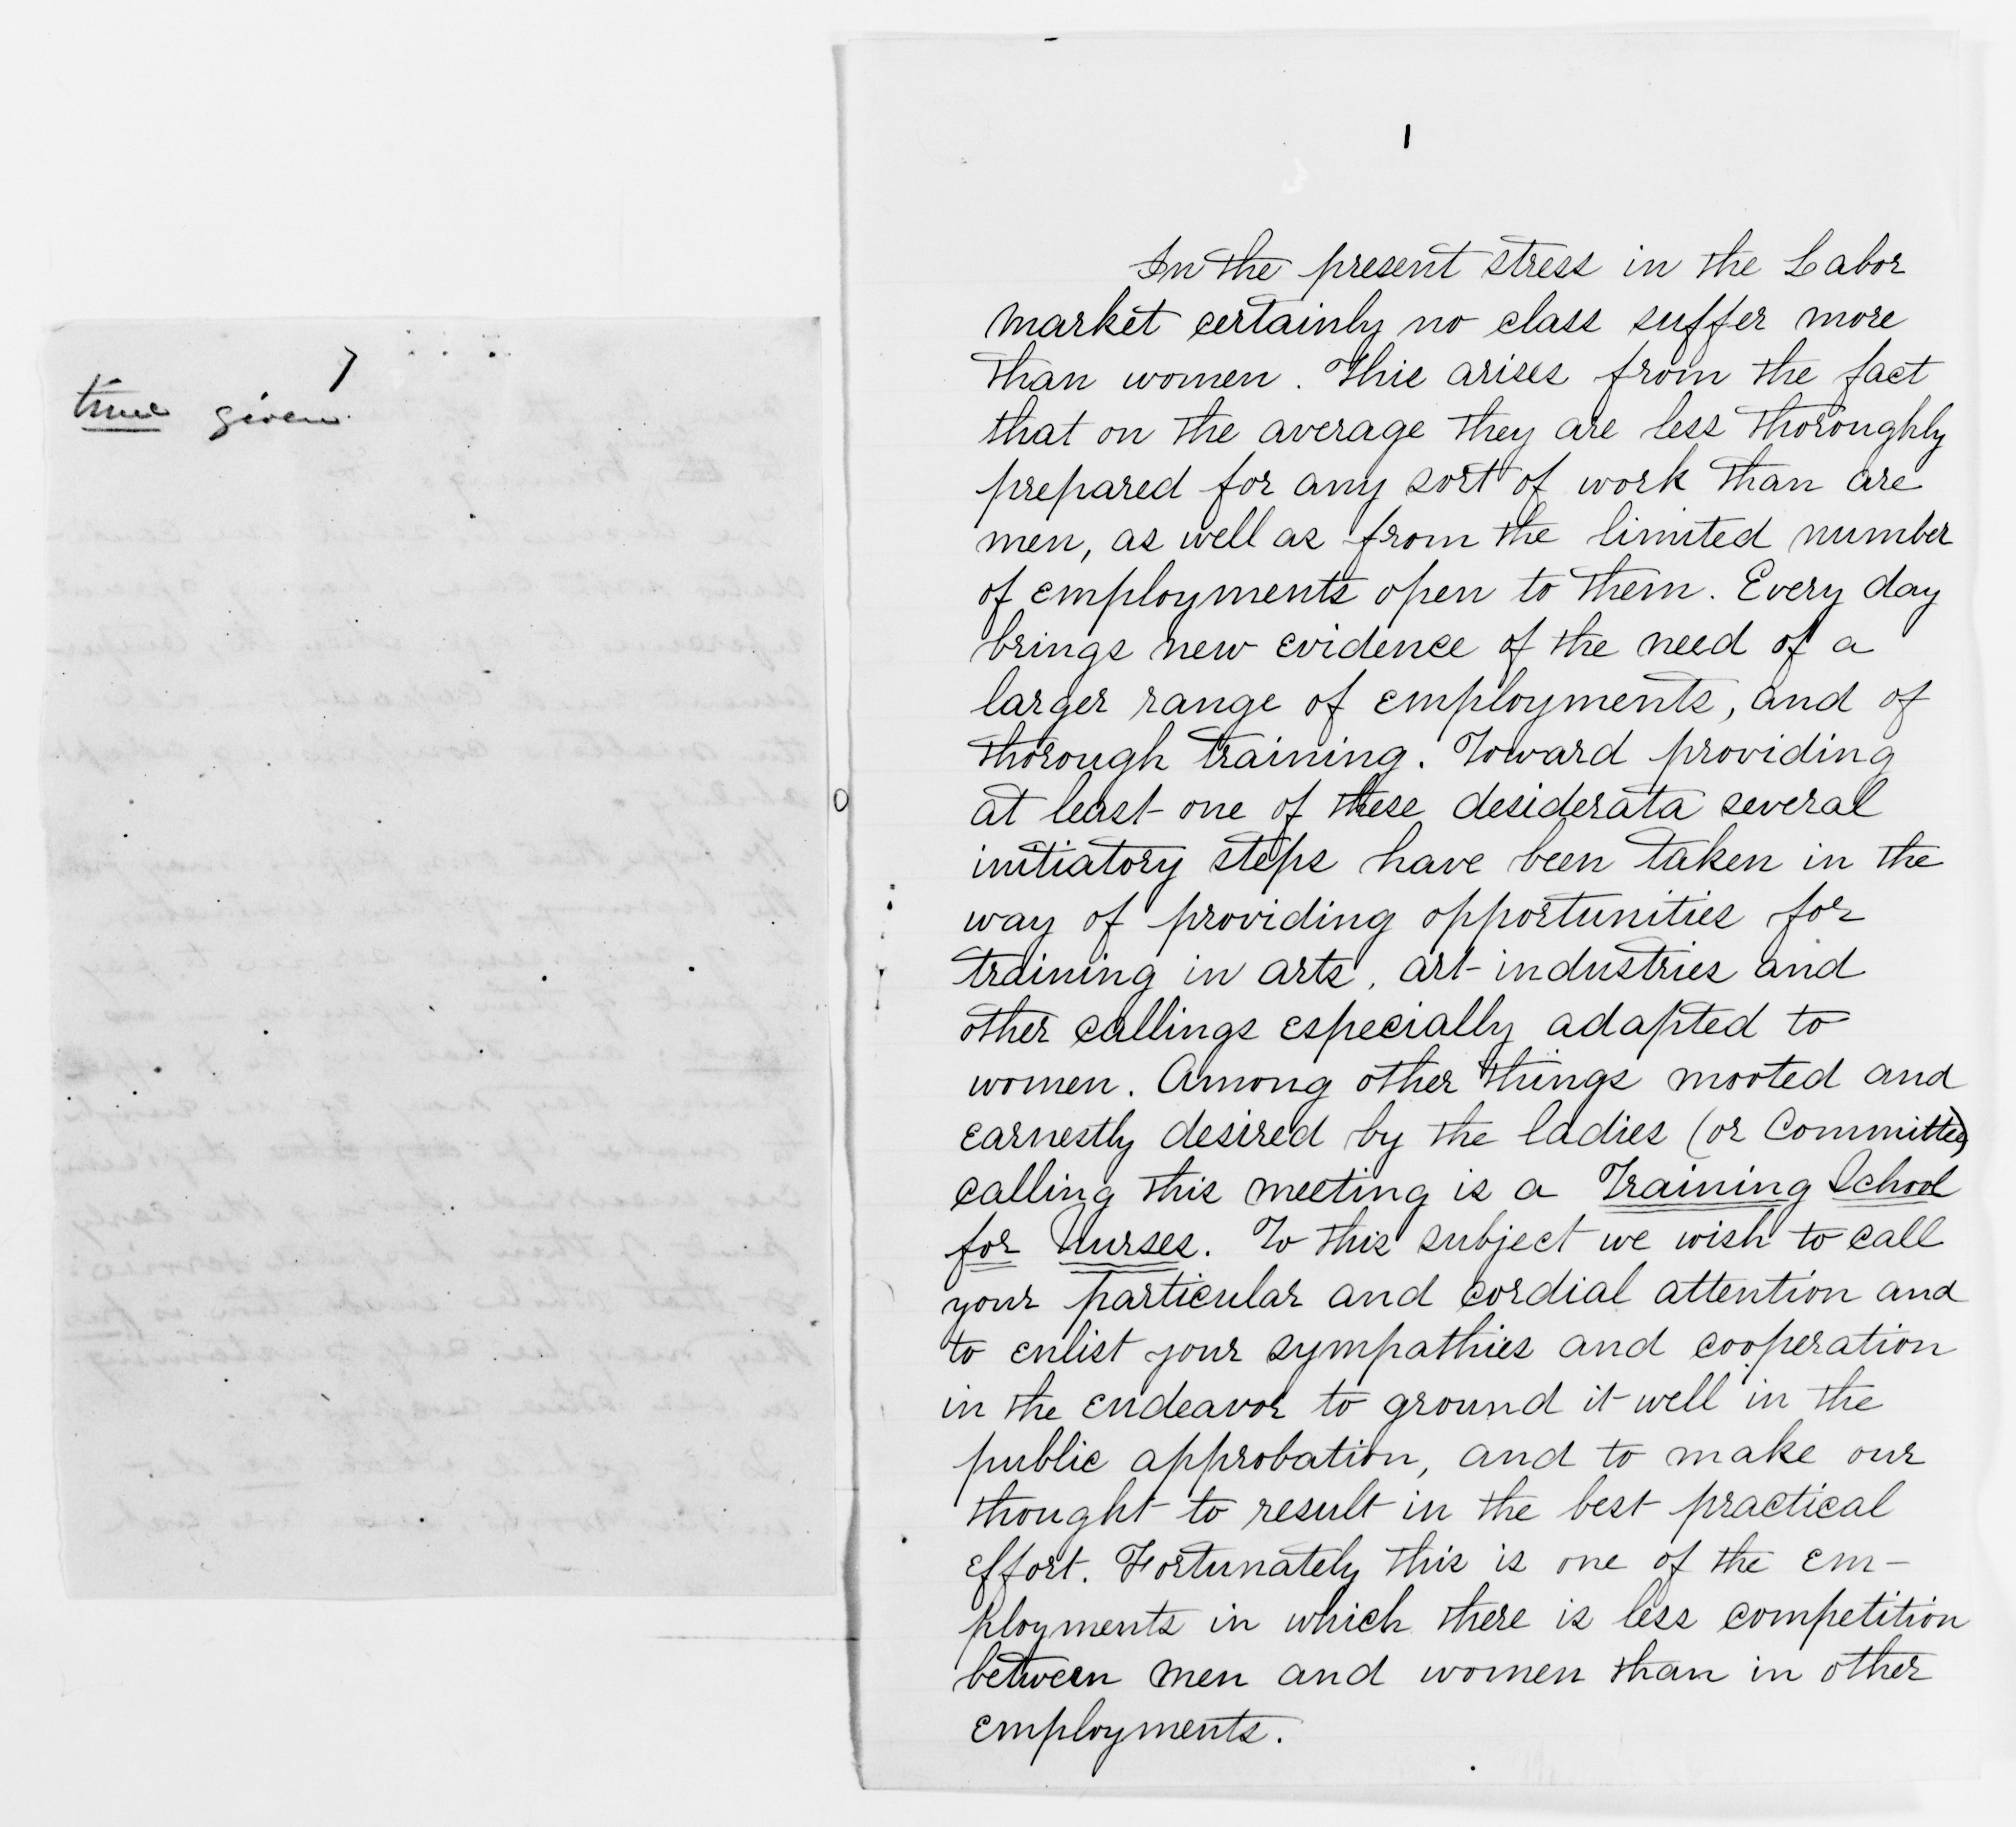 7
time given.
1
In the present stress in the Labor
market certainly no class suffer more
than women. This arises from the fact
that on the average they are less thoroughly
prepared for any sort of work than are
men, as well as from the limited number
of employments open to them. Every day
brings new evidence of the need of a
larger range of employments, and of
thorough training. Toward providing
at least one of these desiderata several
initiatory steps have been taken in the
way of providing opportunities for
training in arts, art-industries and
other callings especially adapted to
women. Among other things mooted and
earnestly desired by the ladies (or Committee)
calling this meeting is a Training School
for Nurses. To this subject we wish to call
your particular and cordial attention and
to enlist your sympathies and cooperation
in the endeavor to ground it well in the
public approbation, and to make our
thought to result in the best practical
effort. Fortunately this is one of the em-
ployments in which there is less competition
between men and women than in other
employments.